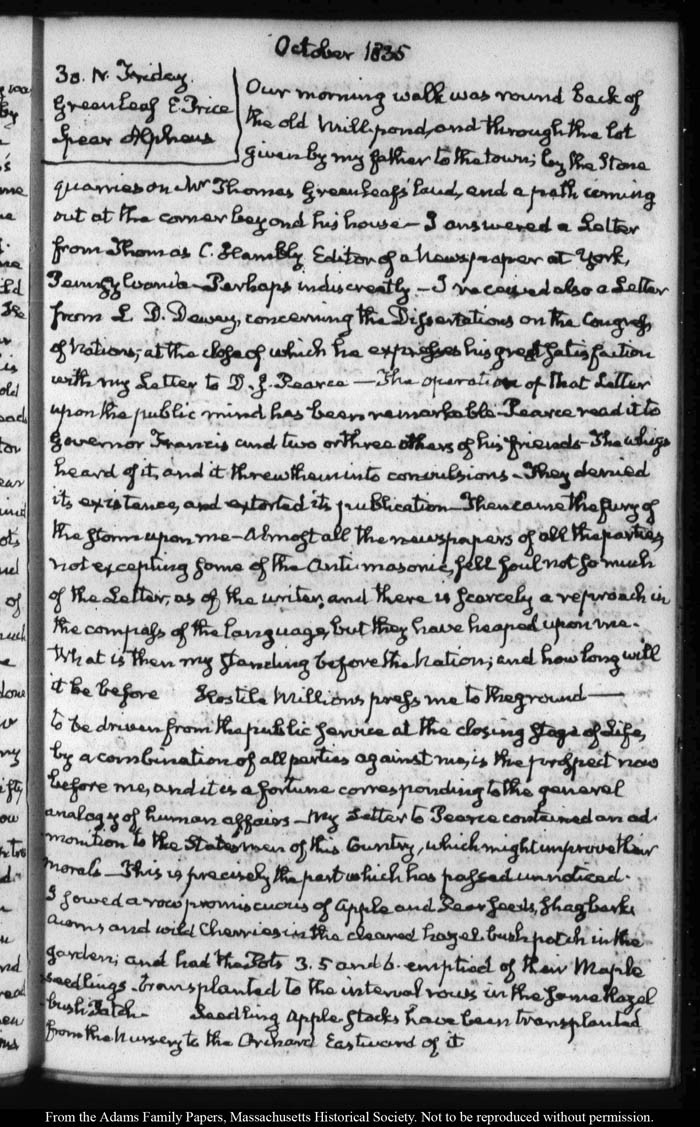 October 1835
30. IV. Friday.
Greenleaf E. Price
Spear Alpheus
Our morning walk was round back of
the old Mill pond, and through the lot
given by my father to the town; by the Stone
quarries on Mr Thomas Greenleaf's land, and a path coming
out at the corner beyond his house — I answered a Letter
from Thomas C. Hambly Editor of a Newspaper at York,
Pennsylvania — Perhaps indiscreetly. — I received also a Letter
from L. D. Dewey, concerning the Dissertations on the Congress
of Nations; at the close of which he expresses his great satisfaction
with my Letter to D. J. Pearce — The operation of that Letter
upon the public mind has been remarkable. Pearce read it to
Governor Francis and two or three others of his friends — The whigs
heard of it, and it threw them into convulsions — They denied
its existence, and extorted its publication — Then came the fury of
the storm upon me — Almost all the newspapers of all the parties,
not excepting some of the Anti-masonic, fell foul not so much
of the Letter, as of the writer, and there is scarcely a reproach in
the compass of the language, but they have heaped upon me.
What is then my standing before the Nation; and how long will
it be before Hostile Millions press me to the ground —
to be driven from the public service at the closing stage of Life,
by a combination of all parties against me, is the prospect now
before me, and it is a fortune corresponding to the general
analogy of human affairs — My Letter to Pearce contained an ad-
monition to the Statesmen of this Country, which might improve their
morals — This is precisely the part which has passed unnoticed.
I sowed a row promiscuous of Apple and Pear seeds, shagbarks
acorns and wild Cherries in the cleared hazel bush patch in the
garden; and had the Pots 3. 5 and 6. emptied of their Maple
seedlings transplanted to the interval rows in the same Hazel
bush Patch — Seedling Apple stocks have been transplanted
from the Nursery to the Orchard Eastward of it
From the Adams Family Papers, Massachusetts Historical Society. Not to be reproduced without permission.